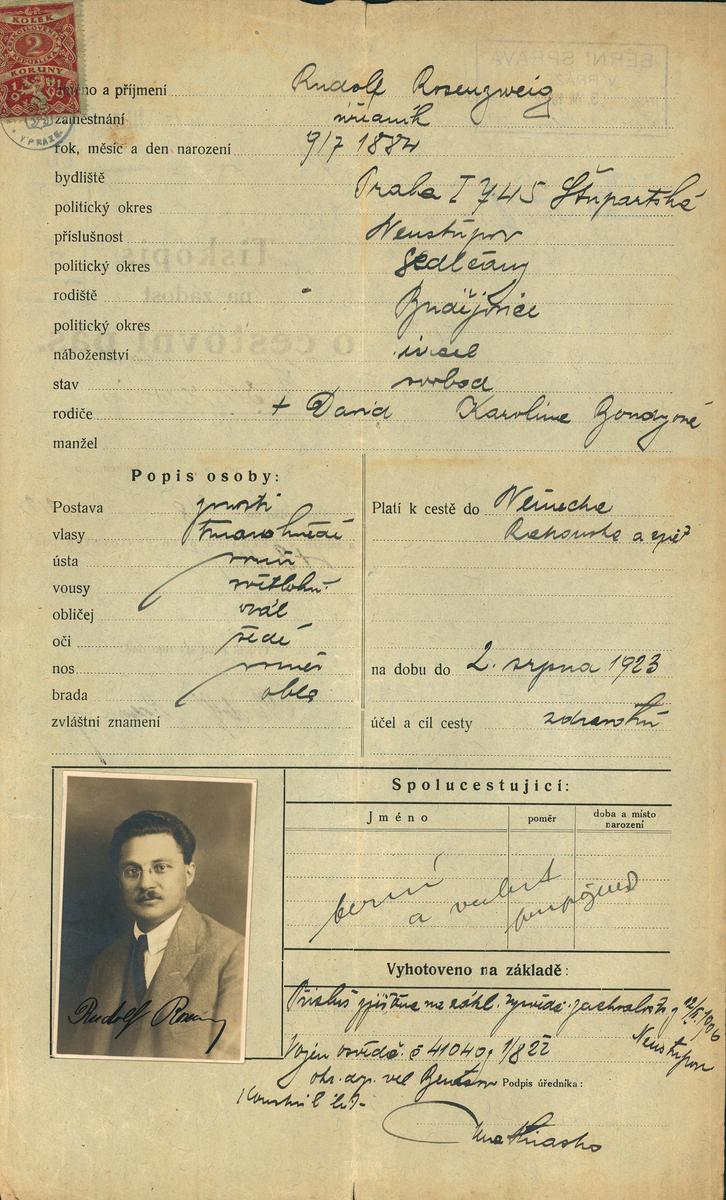 KOLEK
2
KORUNY
V PRAZE
Jméno a příjmení Rudolf Rosenzweig
zaměstnání úředník
rok, měsíc a den narození 9/7 1884
bydliště Praha I 745 Štupartská
politický okres
příslušnost Neustupov
politický okres Sedlčany
rodiště Budějovice
politický okres
náboženství israel
stav svobod
rodiče + David Karoline Bondyové
manžel
Popis osoby:
Postava prostř
vlasy tmavohnědé
ústa
vousy světlohn.
obličej ovál
oči šedé
nos
brada oblá
zvláštní znamení
Platí k cestě do Německa
Rakouska a zpět
na dobu do 2. srpna 1923
účel a cíl cesty zdravotní
Spolucestující:
Jméno
poměr
doba a místo narození
berní a
Vyhotoveno na základě:
na zákl.
Neustupov
Vojen osvědč. č 41040 1/8 22
Podpis úředníka:
Rudolf Rosenzweig